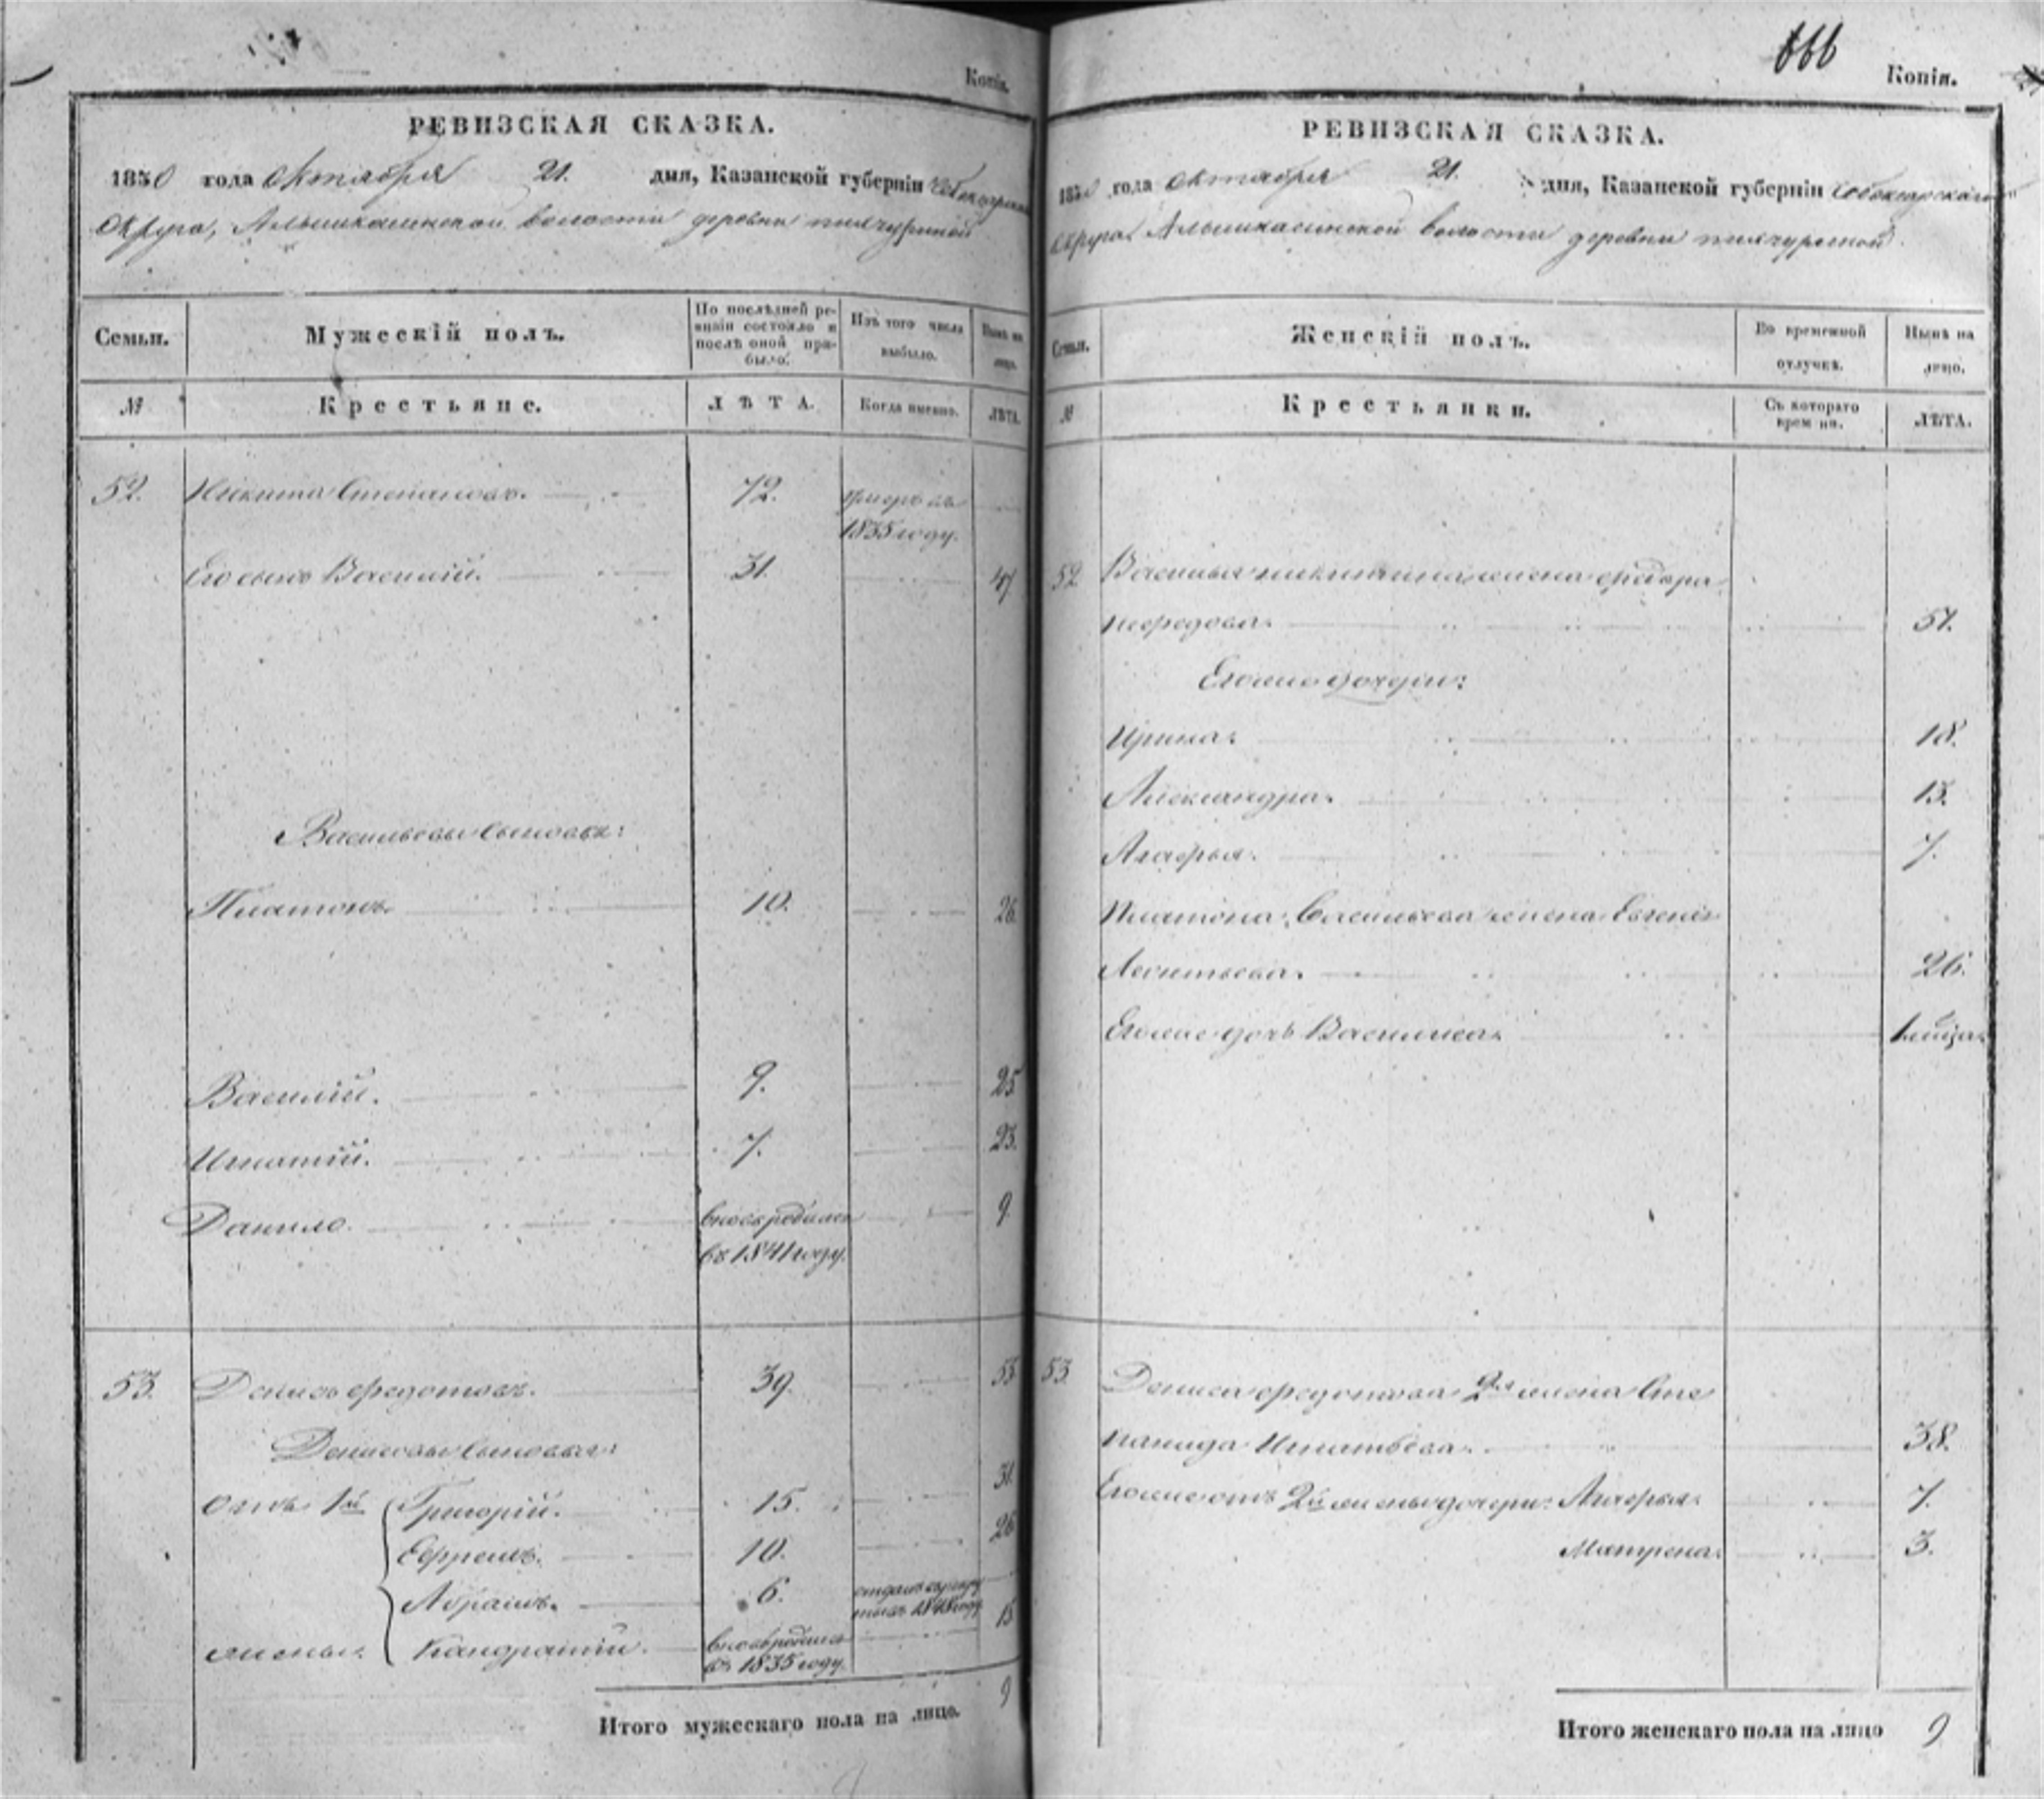 Копія.
РЕВИЗСКАЯ СКАЗКА.
1850 года Октября 21. дня, Казанской губерніи Чебоксарскаго
Округа, Алымкасинской волости деревни
Семьи. Мужескій полъ. По послѣдней ревизіи состояло и послѣ оной прибыло. Изъ того числа выбыло. Нынѣ на лицо.
№ Крестьяне. ЛѢТА. Когда именно. ЛѢТА.
52. Никита Степановъ. 72. умеръ въ
1835 году.
Его сынъ Василій. 31. 47
Васильевы сыновья:
Платонъ. 10. 26.
Василій. 9. 25
Игнатій. 7. 23.
Данило. вновь родился 9.
въ 1841 году.
53. Денисъ Федотовъ. 39. 55
Денисовы сыновья:
отъ 1й Григорій. 15. 31.
Ефремъ. 10. 26
Абрамъ. 6. отданъ въ рекруты въ 1848 году
жены: Кандратій. вновь родился 15
въ 1835 году.
Итого мужескаго пола на лицо. 9
666
Копія.
РЕВИЗСКАЯ СКАЗКА.
1850 года Октября 21. дня, Казанской губерніи Чебоксарскаго
Округа, Алымкасинской волости деревни
Семьи. Женскій полъ. Во временной отлучкѣ. Нынѣ на лицо.
№ Крестьянки. Съ котораго времени. ЛѢТА.
52 Василья Никитина жена Федора
Нефедова. 57.
Его же дочери:
Ирина. 18.
Александра. 13.
Агафья. 7.
Платона Васильева жена Евгенія
Леонтьева. 26.
Его же дочь Василиса. 1 месяца.
53 Дениса Федотова 2я жена Сте
панида Игнатьева. 38.
Его же отъ 2й жены дочери: Агафья. 7.
Матрена. 3.
Итого женскаго пола на лицо 9